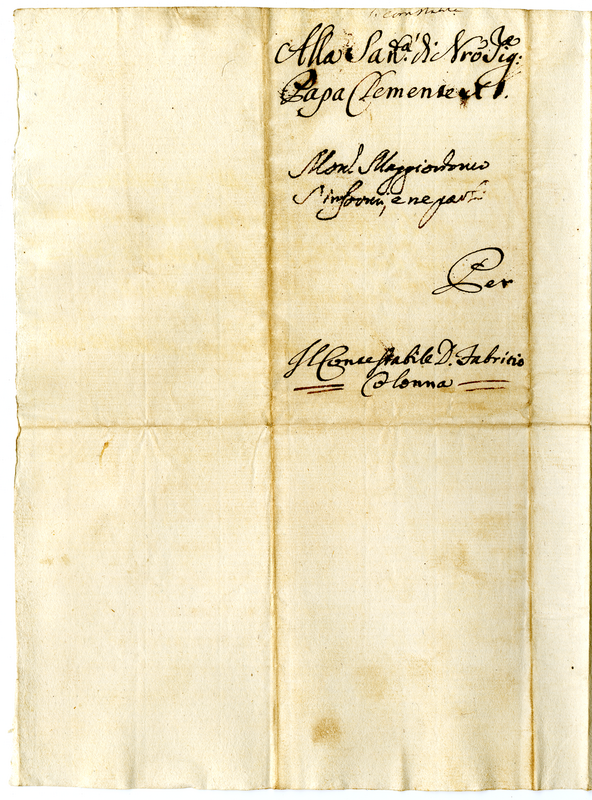 Alla San.ta di Nro Sig.re
Papa Clemente XI.
Mons.r Maggiordomo
s'informi, e ne parli
Per
Il Contestabile D. Fabritio
Colonna